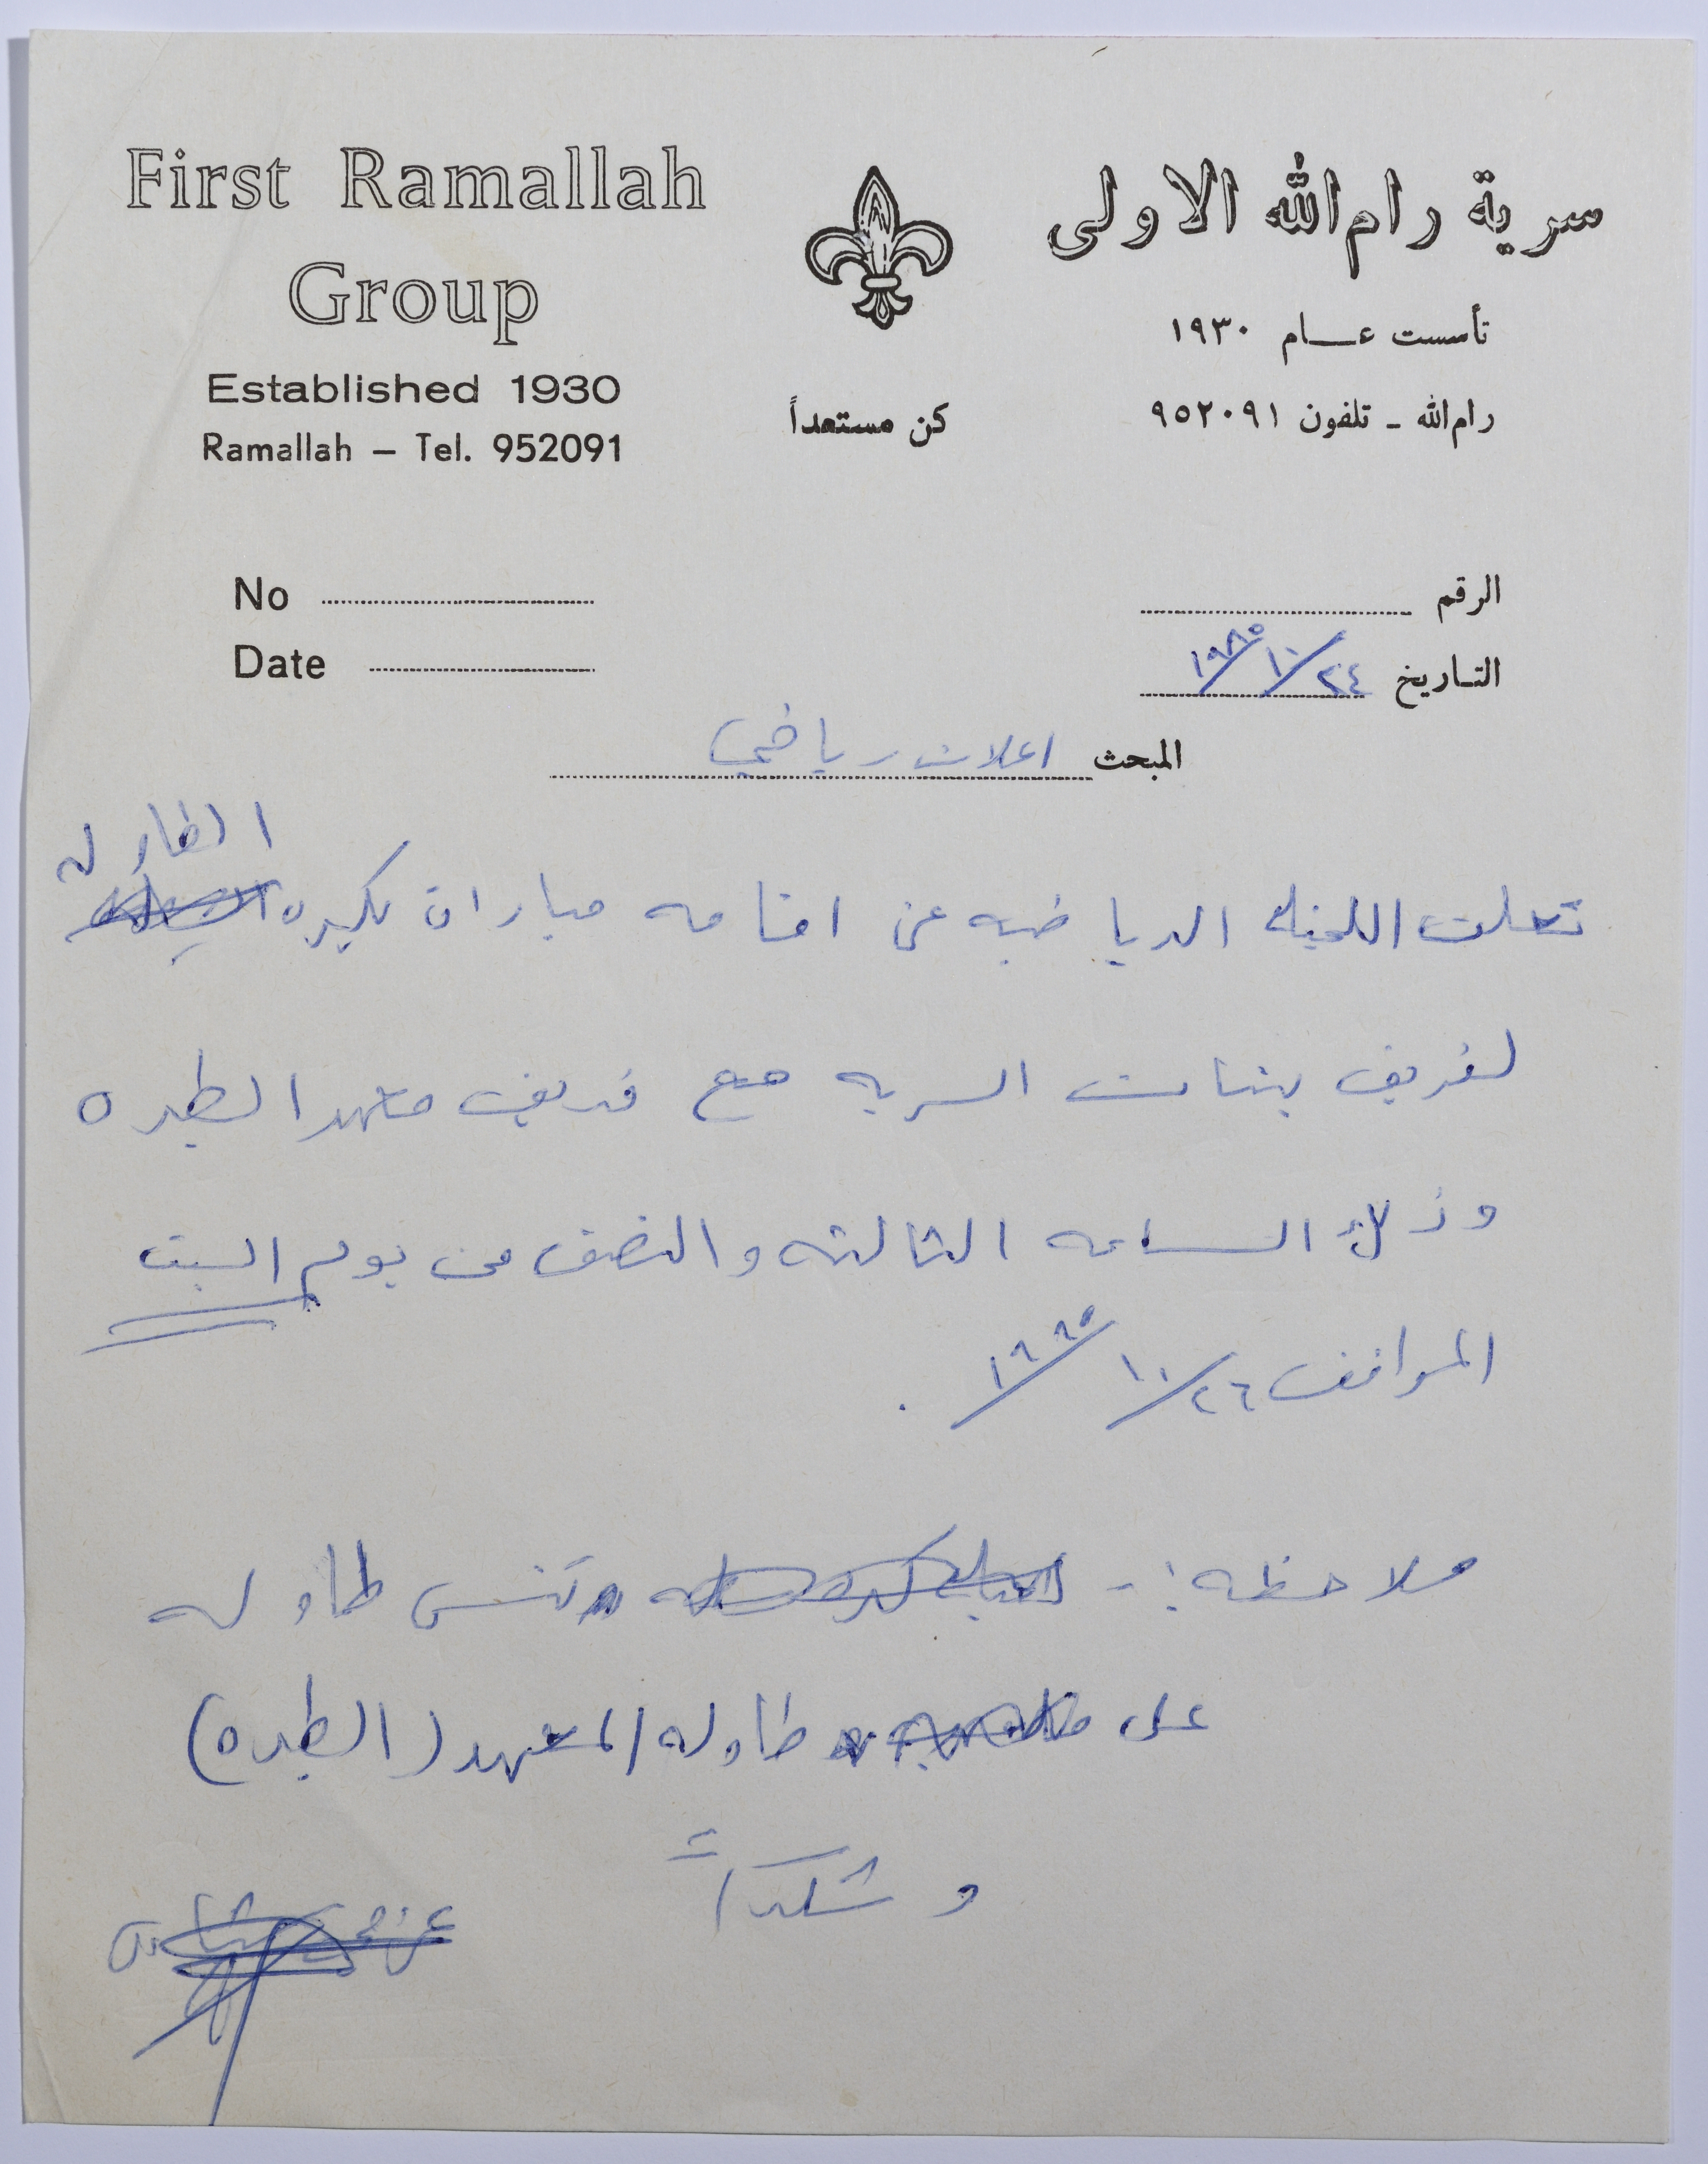 First Ramallah
Group
Established 1930
Ramallah – Tel. 952091
سرية رام الله الاولى
تأسست عـــام ١٩٣٠
رام الله ـ تلفون ٩٥٢٠٩١
كن مستعداً
No
Date
الرقم
التـاريخ ٢٤/١٠/١٩٨٥
المبحث اعلان رياضي
الطاوله
تعلن اللجنه الرياضيه عن اقامه مباراة بكره
لفريق بنات السريه مع فريق معهد الطيره
وذلك الساعه الثالثه والنصف من يوم السبت
الموافق ٢٦/١٠/١٩٨٥ .
ملاحظه :- تنس طاوله
على طاوله المعهد (الطيره)
و شكراً